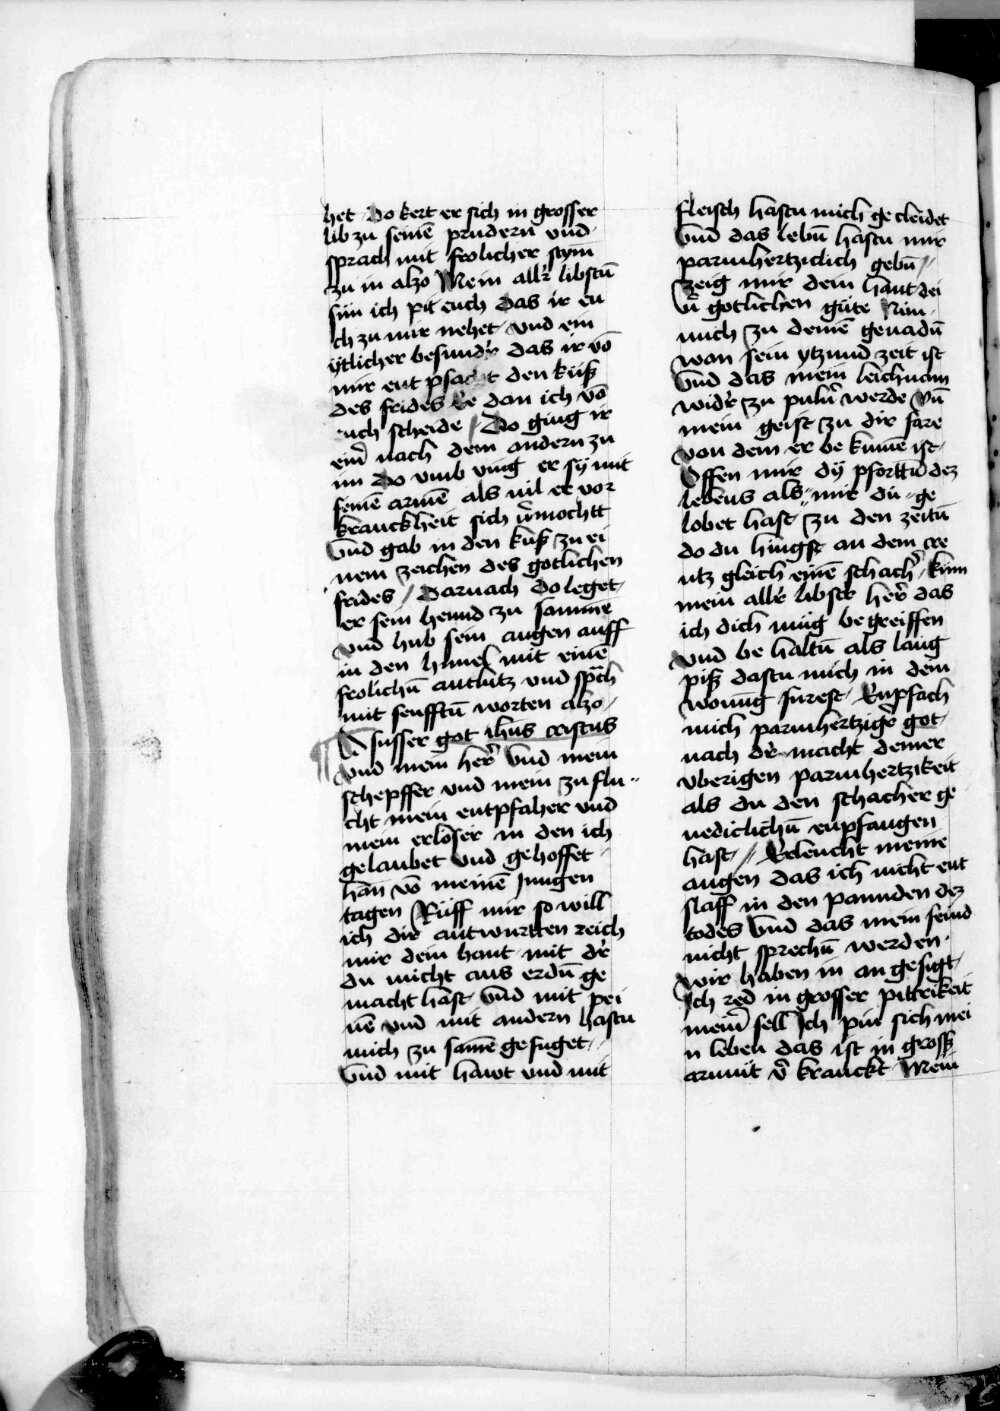 het · Do kert er sich in grosser
lib zu seinē prudern vnd ·
sprach mit frolicher stym
zu in alzo Mein allr̄ libstū
sün ich pit euch das ir eu
ch zu mir nehet · vnd ein
ÿtlicher besundr̄ das ir vō
mir ent pfacht den küß
des frides Ee dan ich vō
euch scheide / Do ging ir
einr̄ nach dem andern zu
im Do vmb ving er sÿ mit
seinē armē als vil er vor
kranckheit sich v̄mochtt
vnd gab in den kuß zu ei
nem zeichen des gotlichen
frides // Darnach do leget ·
er sein hennd zu samme
vnd hub sein augen auff
in den himel mit einē
frolichū antlutz vnd sp̄ch
mit senfftū worten alzo ·
O susser got ihus cristus
vnd mein her̄ vnd mein
schepffer vnd mein zu flu
cht mein entpfaher vnd
mein erlöser in den ich
gelaubet vnd gehoffet ·
han vō meinē Jungen
tagen Rüff mir so will
ich dir antwurtten reich
mir dein hant mit dr̄
du micht aus erdū ge
macht hast · vnd mit pei
nē vnd mit andern hastu
mich zu samē gefuget · /
vnd mit hawt vnd mit
fleisch hastu mich ge cleidet
vnd das lebū hastu mir
parmhertziclich gebū //
zeig mir dein hant dei
nr̄ gotlichen güte Nim ·
mich zu deinē genadū
wan sein ytzund zeit ist
vnd das mein leichnam
widr̄ zu pulu̅ werde vn̄
mein geist zu dir fare
von dem er be kumē ist ·
Offen mir dÿ pforttū dez
lebens als mir du ge
lobet hast · zu den zeitū
do du hingst an dem cre
utz gleich einē schachr̄ · kum
mein allr̄ libster her̄ das
ich dich müg begreiffen
vnd be haltū als lang
piß dastu mich in dem
wonūg furest · Enpfach
mich parmhertzigr̄ got ·
nach dr̄ macht deiner
vberigen parmhertzikeit
als du den schacher ge
nediclichū enpfangen
hast · // Erleucht meine
augen das ich nicht ent
slaff in den pannden dez
todes vnd das mein feind
nicht sprechū werden ·
wir haben in an gesigt ·
Ich red in grosser pittrikeit
meinr̄ sell Ich pin sich mei
n leben das ist in groß
armüt v̄ kranckt · Mein